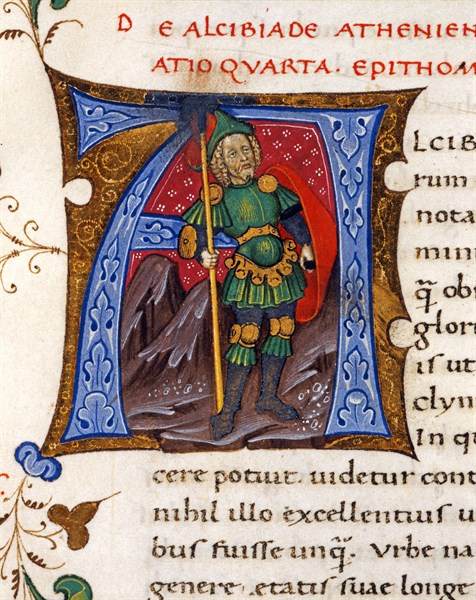 DE ALCIBIADE ATHENIEN
ATIO QVARTA. EPITHOM
A
LCIB
rum
nota
mini
q̄ obi
glori
is ut
clyn
In qu
cere potuit. uidetur cont
nihil illo excellentius u
bus fuisse unq̄. Vrbe na
genere. etatis suae longe